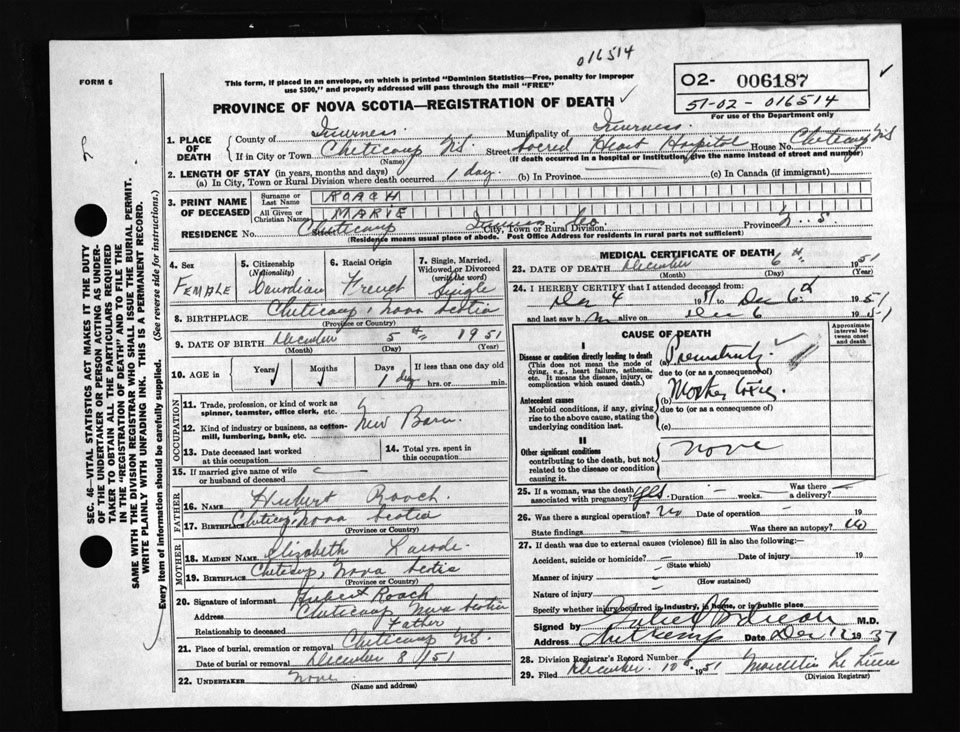 016514
FORM 6
This form, if placed in an envelope, on which is printed "Dominion Statistics—Free, penalty for improper
use $300," and properly addressed will pass through the mail "FREE"
O2- 006187
51-02-016514
For use of the Department only
PROVINCE OF NOVA SCOTIA—REGISTRATION OF DEATH
1. PLACE OF DEATH
County of Inverness. Municipality of Inverness.
If in City or Town Cheticamp N.S. Street Sacred Heart Hospital House No. Cheticamp N.S
(Name) (If death occurred in a hospital or institution, give the name instead of street and number)
2. LENGTH OF STAY (in years, months and days)
(a) In City, Town or Rural Division where death occurred 1 day. (b) In Province (c) In Canada (if immigrant)
3. PRINT NAME OF DECEASED
Surname or Last Name ROACH
All Given or Christian Names MARIE
RESIDENCE No. Street Cheticamp City, Town or Rural Division Inverness Co. Province N.S.
(Residence means usual place of abode. Post Office Address for residents in rural parts not sufficient)
4. Sex FEMALE
5. Citizenship (Nationality) Canadian
6. Racial Origin French
7. Single, Married, Widowed or Divorced (write the word) Single
8. BIRTHPLACE Cheticamp, Nova Scotia
(Province or Country)
9. DATE OF BIRTH December 5th 1951
(Month) (Day) (Year)
10. AGE in Years Months Days 1 day If less than one day old hrs. or min.
OCCUPATION
11. Trade, profession, or kind of work as spinner, teamster, office clerk, etc.
12. Kind of industry or business, as cotton-mill, lumbering, bank, etc. New Born.
13. Date deceased last worked at this occupation
14. Total yrs. spent in this occupation
15. If married give name of wife or husband of deceased —
FATHER
16. NAME Hubert Roach.
17. BIRTHPLACE Cheticamp Nova Scotia
(Province or Country)
MOTHER
18. MAIDEN NAME Elizabeth
19. BIRTHPLACE Cheticamp, Nova Scotia
(Province or Country)
20. Signature of informant Hubert Roach
Address Cheticamp Nova Scotia
Relationship to deceased Father
21. Place of burial, cremation or removal Cheticamp N.S.
Date of burial or removal December 8/51
22. UNDERTAKER None.
(Name and address)
MEDICAL CERTIFICATE OF DEATH
23. DATE OF DEATH December 6th 1951
(Month) (Day)
24. I HEREBY CERTIFY that I attended deceased from:
Dec 4 1951 to Dec 6th 1951
and last saw h alive on Dec 6 1951
CAUSE OF DEATH
Approximate interval between onset and death
I
Disease or condition directly leading to death (a) Prematurity
(This does not mean the mode of dying, e.g., heart failure, asthenia, etc. It means the disease, injury, or complication which caused death.)
due to (or as a consequence of)
Antecedent causes (b) Mother toxic.
Morbid conditions, if any, giving rise to the above cause, stating the underlying condition last.
due to (or as a consequence of)
(c)
II
Other significant conditions None
contributing to the death, but not related to the disease or condition causing it.
25. If a woman, was the death associated with pregnancy? Yes. Duration — weeks. Was there a delivery? —
26. Was there a surgical operation? No Date of operation — 19
State findings — Was there an autopsy? No
27. If death was due to external causes (violence) fill in also the following:—
Accident, suicide or homicide? — Date of injury 19
(State which)
Manner of injury —
(How sustained)
Nature of injury —
Specify whether injury occurred in industry, in home, or in public place
Signed by M.D.
Address Cheticamp Date Dec 12 1937
28. Division Registrar's Record Number
29. Filed December 19th 1951
(Division Registrar)
SEC. 46—VITAL STATISTICS ACT MAKES IT THE DUTY
OF THE UNDERTAKER OR PERSON ACTING AS UNDER-
TAKER TO OBTAIN ALL THE PARTICULARS REQUIRED
IN THE "REGISTRATION OF DEATH" AND TO FILE THE
SAME WITH THE DIVISION REGISTRAR WHO SHALL ISSUE THE BURIAL PERMIT.
WRITE PLAINLY WITH UNFADING INK. THIS IS A PERMANENT RECORD.
Every item of information should be carefully supplied. (See reverse side for instructions.)